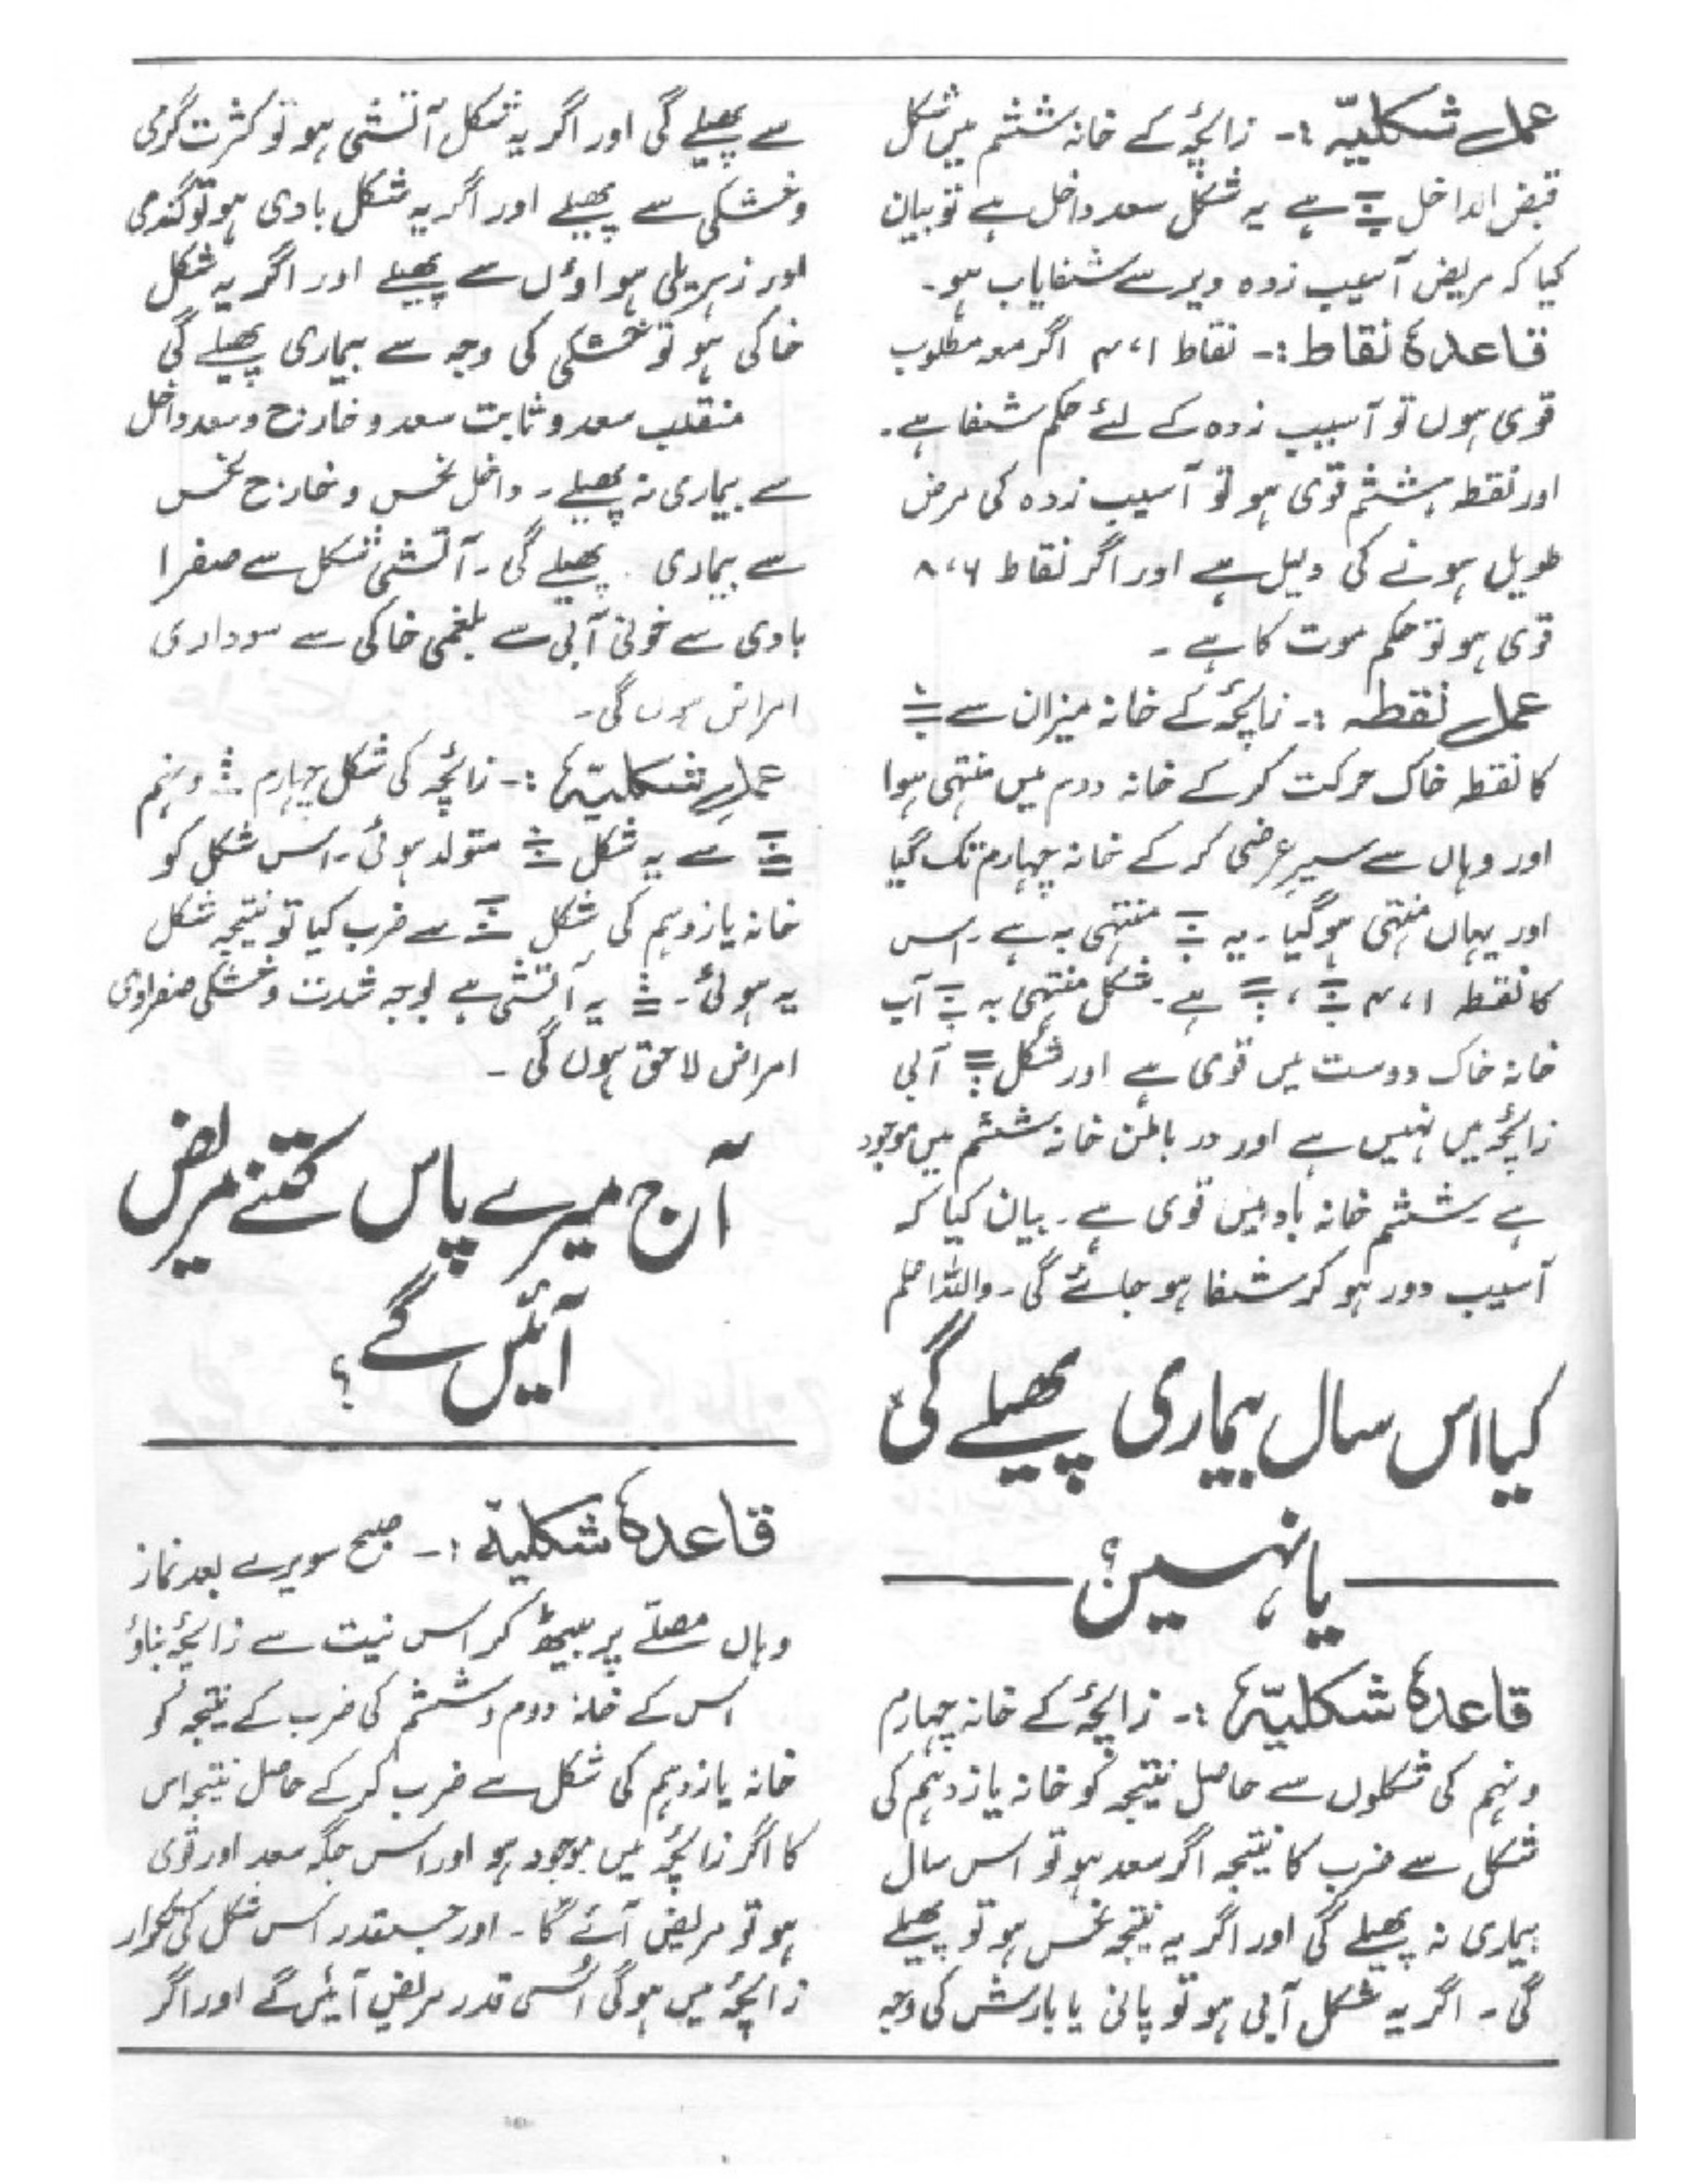 عمل شکلیہ :- زائچہ کے خانہ ششم میں شکل
قبض الداخل ہے یہ شکل سعد داخل ہے تو بیان
کیا کہ مریض آسیب زدہ دیر سے شفایاب ہو۔
قاعدۂ نقاط :- نقاط ۱، ۴ اگر معہ مطلوب
قوی ہوں تو آسیب زدہ کے لئے حکم شفا ہے۔
اور نقطہ ہشتم قوی ہو تو آسیب زدہ کی مرض
طویل ہونے کی دلیل ہے اور اگر نقاط ۶، ۸
قوی ہو تو حکم موت کا ہے ۔
عمل نقطہ :- زائچہ کے خانہ میزان سے
کا نقطہ خاک حرکت کر کے خانہ دوم میں منتہی ہوا
اور وہاں سے سیر عرضی کر کے خانہ چہارم تک گیا
اور یہاں منتہی ہوگیا ۔ یہ منتہی بہ ہے ۔ اس
کا نقطہ ۱، ۴ ، ہے ۔ شکل منتہی بہ آب
خانہ خاک دوست میں قوی ہے اور شکل آبی
زائچہ میں نہیں ہے اور در باطن خانہ ششم میں موجود
ہے ۔ ششم خانہ باد میں قوی ہے ۔ بیان کیا کہ
آسیب دور ہو کر شفا ہو جائے گی ۔ واللہ اعلم
کیا اس سال بیماری پھیلے گی
یا نہیں؟
قاعدۂ شکلیہ :- زائچہ کے خانہ چہارم
و نہم کی شکلوں سے حاصل نتیجہ کو خانہ یازدہم کی
شکل سے ضرب کا نتیجہ اگر سعد ہو تو اس سال
بیماری نہ پھیلے گی اور اگر یہ نتیجہ نحس ہو تو پھیلے
گی ۔ اگر یہ شکل آبی ہو تو پانی یا بارش کی وجہ
سے پھیلے گی اور اگر یہ شکل آتشی ہو تو کثرت گرمی
و خشکی سے پھیلے اور اگر یہ شکل بادی ہو تو گندی
اور زہریلی ہواؤں سے پھیلے اور اگر یہ شکل
خاکی ہو تو خشکی کی وجہ سے بیماری پھیلے گی
منقلب سعد و ثابت سعد و خارج و سعد داخل
سے بیماری نہ پھیلے ۔ داخل نحس و خارج نحس
سے بیماری پھیلے گی ۔ آتشی شکل سے صفرا
بادی سے خونی آبی سے بلغمی خاکی سے سوداری
امراض ہوں گی۔
عمل شکلیہ :- زائچہ کی شکل چہارم و نہم
سے یہ شکل متولد ہوئی ۔ اس شکل کو
خانہ یازدہم کی شکل سے ضرب کیا تو نتیجہ شکل
یہ ہوئی ۔ یہ آتشی ہے بوجہ شدت و خشکی صفراوی
امراض لاحق ہوں گی ۔
آج میرے پاس کتنے مریض
آئیں گے؟
قاعدۂ شکلیہ :- صبح سویرے بعد نماز
وہاں مصلّے پر بیٹھ کر اس نیت سے زائچہ بناؤ
اس کے خانہ دوم و ششم کی ضرب کے نتیجہ کو
خانہ یازدہم کی شکل سے ضرب کر کے حاصل نتیجہ اس
کا اگر زائچہ میں موجود ہو اور اس جگہ سعد اور قوی
ہو تو مریض آئے گا ۔ اور جسقدر اس شکل کی تکرار
زائچہ میں ہوگی اُسی قدر مریض آئیں گے اور اگر